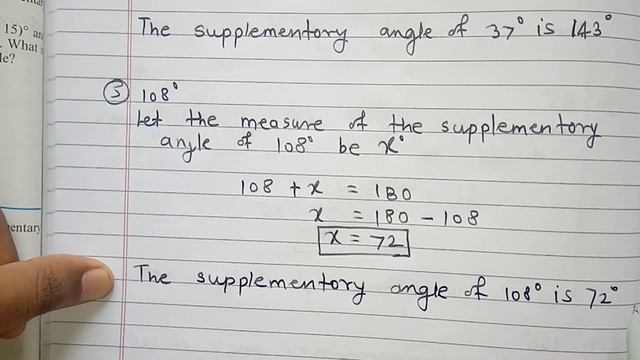 15)° an
. What
le?
entary
The supplementory angle of 37° is 143°
③ 108°
Let the measure of the supplementory
angle of 108° be x°
108 + x = 180
x = 180 - 108
x = 72
The supplementory angle of 108° is 72°